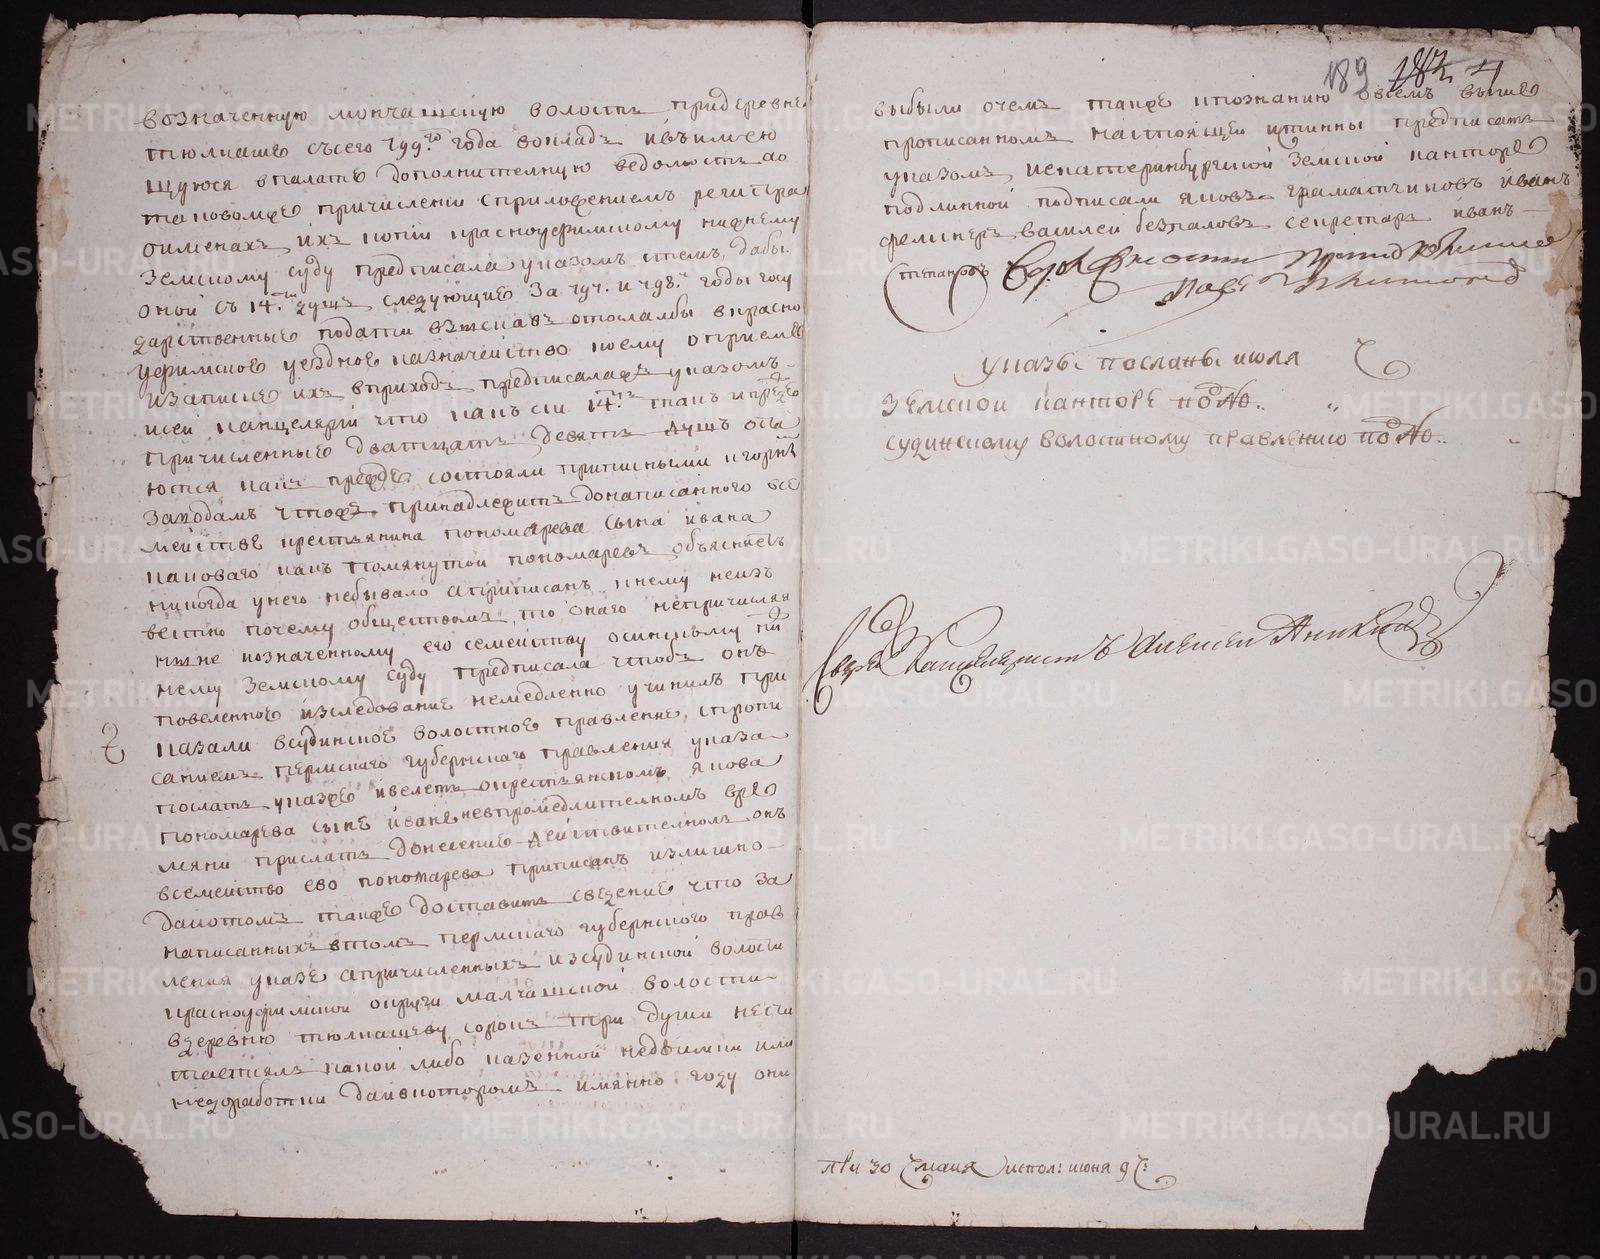 возначенную мончашскую волость придеревне
тюлкаше съсего 799го года вокладъ ивъимею
щуюся впалате дополнительную ведомость ао
таковомже причислении сприложениемъ регистра
оименахъ ихъ копии красноуфимскому нижнему
Земскому суду предписала указомъ стемъ дабы
оной съ 14ти душъ следующие за 797. и 798.й годы госу
дарственные подати взыскавъ отослалбы вкрасно
уфимское уездное казначейство коему оприеме
изаписке ихъ вприходъ предписалаже указомъ
исей канцелярии что какъ сии 14ть такъ ипрежде
причисленные дватцать девять душъ оста
ются какъ прежде состояли приписными кгорнымъ
Заводамъ чтоже принадлежитъ донаписанного все
мействе крестьянина пономарева сына ивана
каковаго какъ помянутой пономаревъ объясняетъ
никогда унего небывало априписанъ кнему неизъ
вестно почему обществомъ то онаго непричисляя
ныне козначенному его семейству осинскому ниж
нему Земскому суду предписала чтобъ онъ
повеленное изследование немедленно учинилъ при
казали всудинское волостное правление спропи
саниемъ пермскаго губернскаго правления указа
послать указже ивелеть окрестьянскомъ якова
пономарева сыне иване невпродолжительномъ вре
мяни прислать донесение действительноль онъ
всемейство ево пономарева приписанъ излишно
дапотомъ также доставить сведение что за
написанныхъ втомъ пермскаго губернского прав
ления указе апричисленныхъ изсудинской волости
красноуфимской округи малчашской волости
вдеревню тюлкашеву сорокъ три души несчи
таетсяль какой либо казенной недоимки или
недоработки давкоторомъ имянно году они
189 4
выбыли очемъ также кпознанию овсемъ выше
прописанномъ настоящей истинны предписать
указомъ искатеринбургской Земской канторе
подлинной подписали яковъ граматчиковъ иванъ
фелкнеръ василей безпаловъ секретарь иванъ
Степановъ
указы посланы июля
Земской канторе подNо..
судинскому волостному правлению подNо..
Сверялъ Канцеляристъ Алексей Аникинъ
при 30 маия испол: июня 9